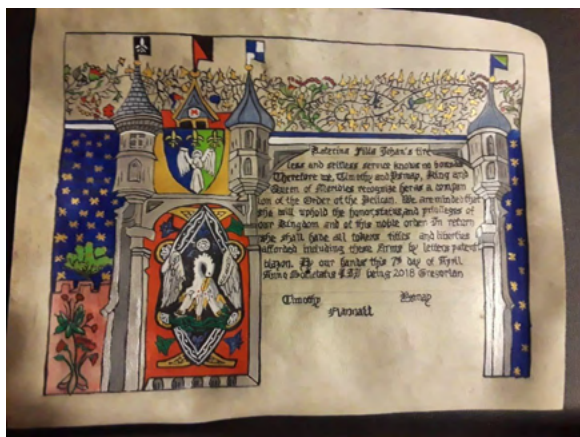 tire
less and selfless service knows no bounds
Therefore we, Timothy and King and
Queen of Meridies recognize her as a compan
ion of the Order of the Pelican. We are that
she will uphold the honor, status, and privileges of
our Kingdom and of this noble order In return
she shall have all tokens titles and liberties
afforded including these Arms by letters patent
blazon. By our hands this 7th day of April
Anno Societatis LII being 2018 Gregorian
Timothy